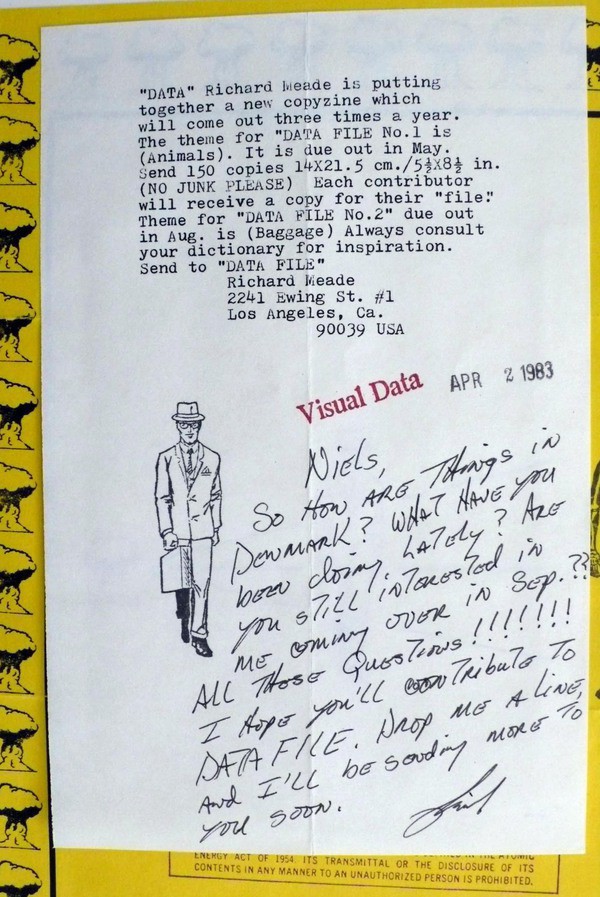 "DATA" Richard Meade is putting
together a new copyzine which
will come out three times a year.
The theme for "DATA FILE No.1 is
(Animals). It is due out in May.
Send 150 copies 14X21.5 cm./5½X8½ in.
(NO JUNK PLEASE) Each contributor
will receive a copy for their "file."
Theme for "DATA FILE No.2" due out
in Aug. is (Baggage) Always consult
your dictionary for inspiration.
Send to "DATA FILE"
Richard Meade
2241 Ewing St. #1
Los Angeles, Ca.
90039 USA
Visual Data APR 2 1983
Niels,
So How ARE THings iN
DENMARK? WHAT HAVE you
beeN doing LATely? ARE
you STill iNTeresTed iN
ME coming over iN Sep.??
ALL THese QuesTioNs!!!!!!!
I Hope you'll coNTribuTe To
DATA FILE. DROP ME A LiNe,
AND I'll be seNding MORE To
you sooN.
ENERGY ACT OF 1954. ITS TRANSMITTAL OR THE DISCLOSURE OF ITS
CONTENTS IN ANY MANNER TO AN UNAUTHORIZED PERSON IS PROHIBITED.